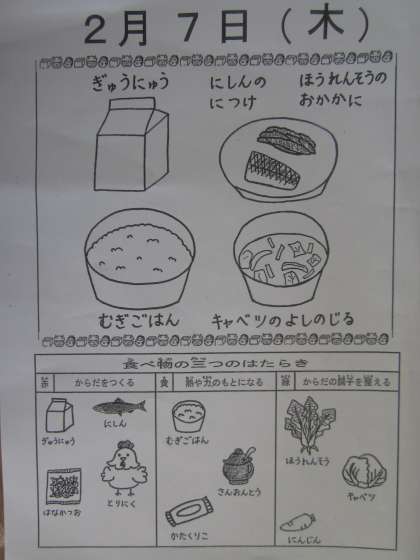 2月 7日(木)
ぎゅうにゅう
にしんの
につけ
ほうれんそうの
おかかに
むぎごはん
キャベツのよしのじる
食べ物の三つのはたらき
赤 からだをつくる
黄 熱や力のもとになる
緑 からだの調子を整える
ぎゅうにゅう
にしん
はなかつお
とりにく
むぎごはん
さんおんとう
かたくりこ
ほうれんそう
キャベツ
にんじん